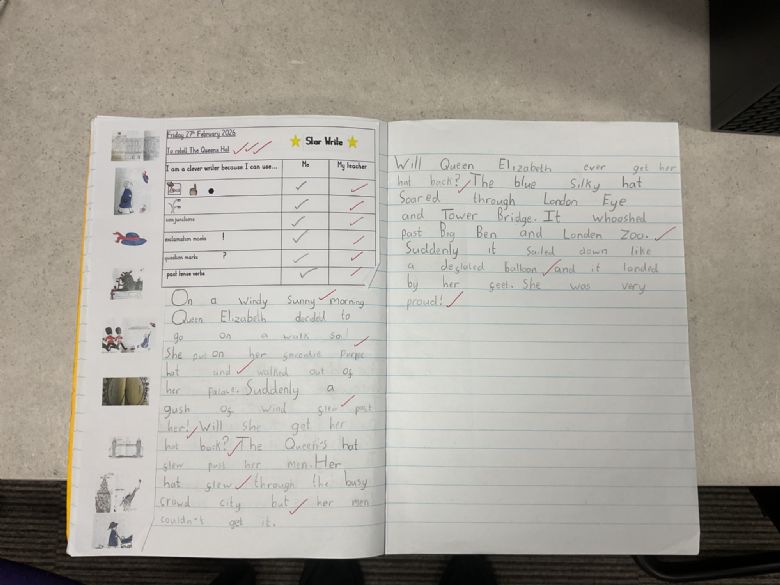 Friday 27th February 2026
To retell The Queens Hat
Star Write
I am a clever writer because I can use... Me My teacher
conjunctions
exclamation marks !
question marks ?
past tense verbs
On a windy sunny morning
Queen Elizabeth decided to
go on a walk so
She put on her
hat and walked out of
her palace. Suddenly a
gush of wind flew past
her! Will she get her
hat back? The Queen's hat
flew past her men. Her
hat flew through the busy
crowd city but her men
couldn't get it.
Will Queen Elizabeth ever get her
hat back? The blue silky hat
Soared through London Eye
and Tower Bridge. It whooshed
past Big Ben and London Zoo.
Suddenly it sailed down like
a balloon and it landed
by her feet. She was very
proud!